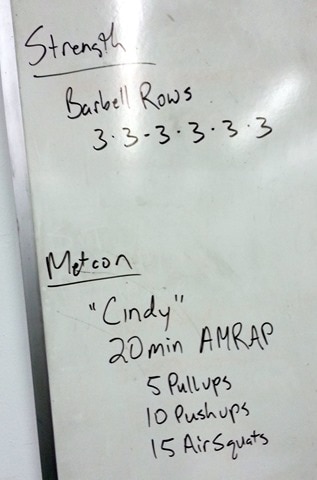 Strength
Barbell Rows
3·3-3·3·3·3
Metcon
"Cindy"
20min AMRAP
5 Pullups
10 Pushups
15 AirSquats